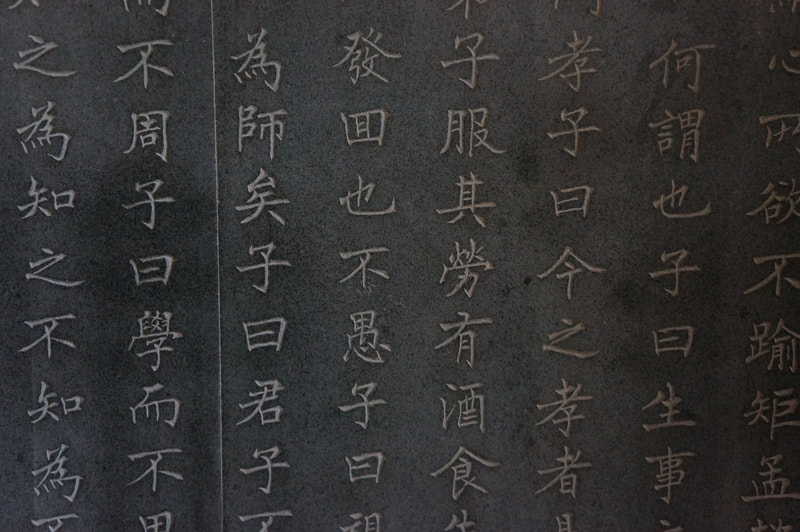 心所欲不踰矩孟
何謂也子曰生事之
孝子曰今之孝者是
弟子服其勞有酒食先
發囬也不愚子曰視
為師矣子曰君子不
而不周子曰學而不思
之為知之不知為不